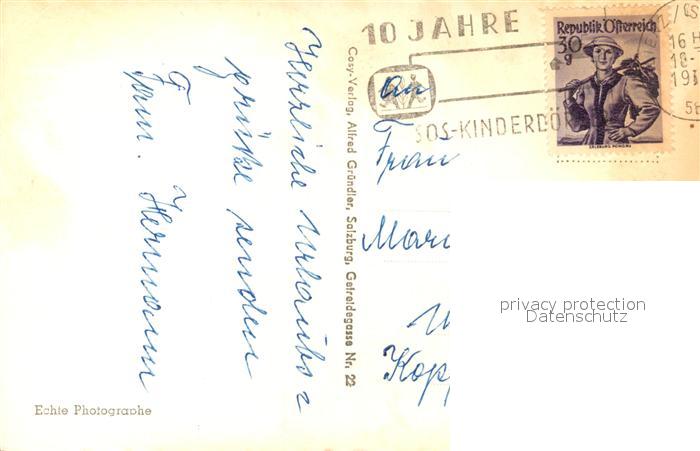 Herrliche Urlaubs=
grüße senden
Fam. Hermann
Echte Photographe
Cosy-Verlag, Alfred Gründler, Salzburg, Getreidegasse Nr. 22
10 JAHRE
SOS-KINDERDÖR
Republik Österreich
30
g
SALZBURG PONGAU
16
18-
19
An
Frau
Mari
Kopp
privacy protection
Datenschutz